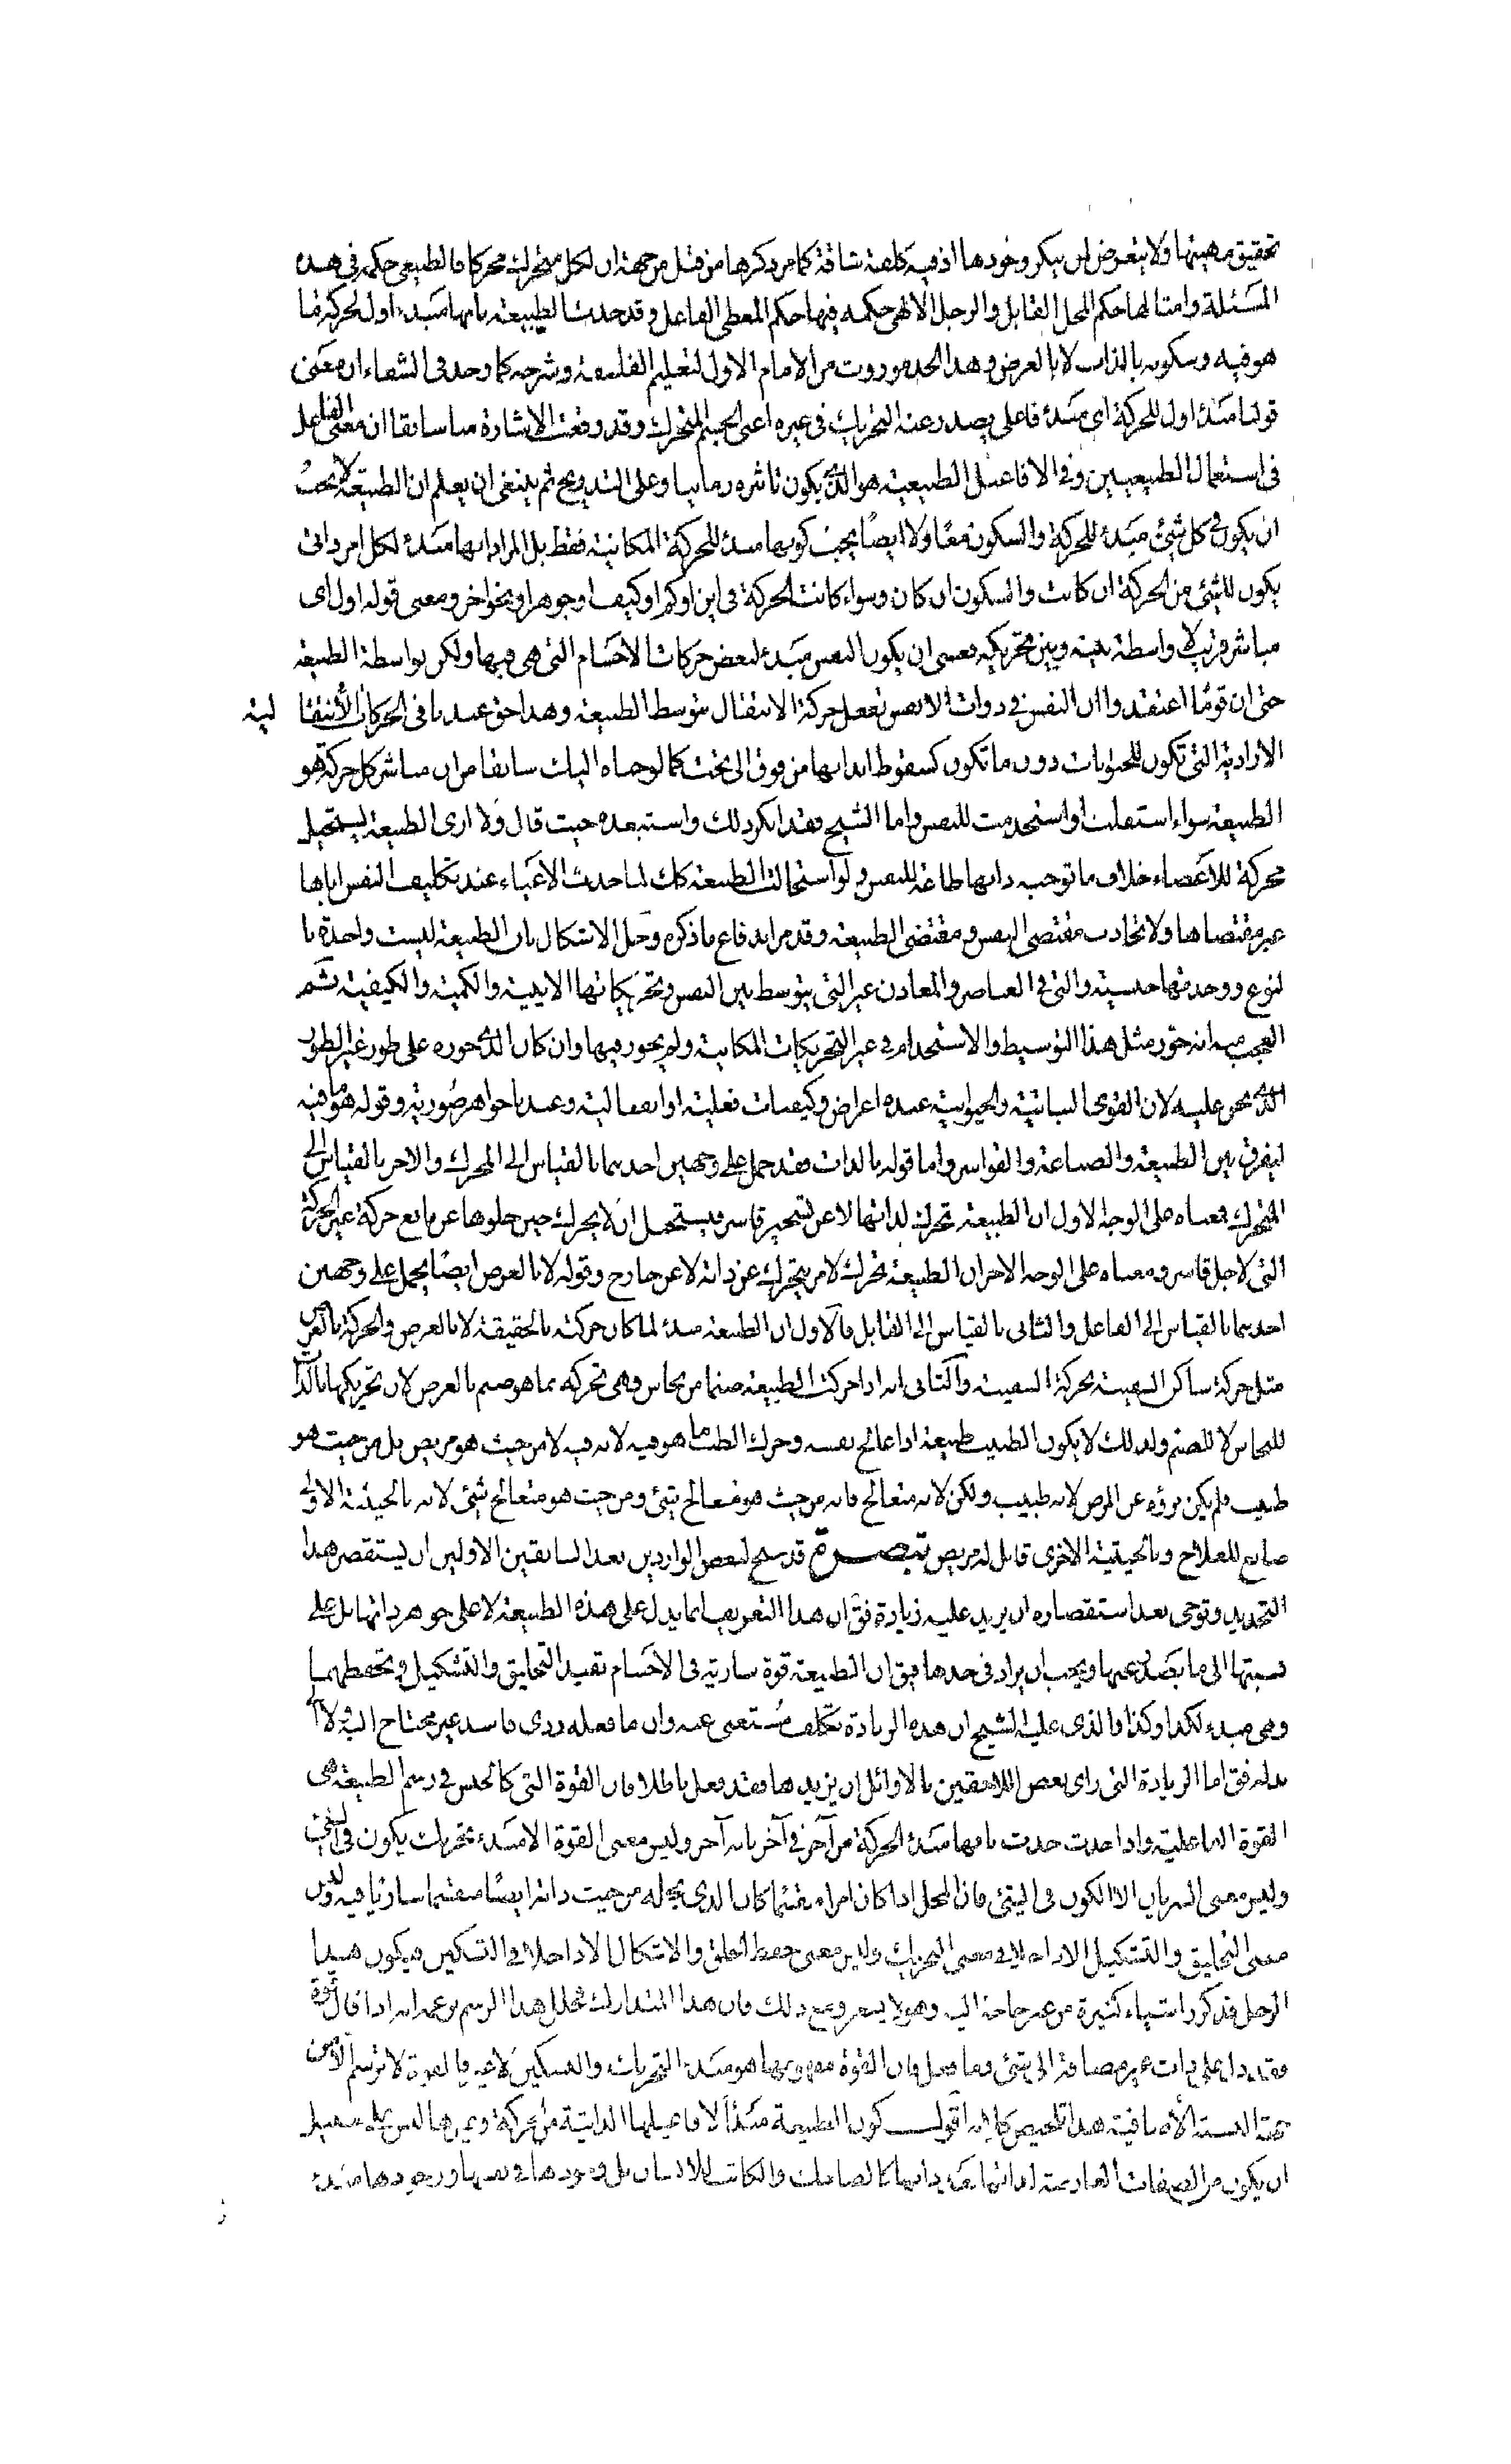 تحقيق مهيتها ولا يتعرض لمن ينكر وجودها اذ فيه كلفة شاقة كما مر ذكرها من قبل من جهة ان لكل متحرك محركا فالطبيعى حكمه فى هذه
المسئلة وامثالها حكم المحل القابل والرجل الالهى حكمه فيها حكم المعطى الفاعل وقد حدث الطبيعة بانها مبدء اول لحركة ما
هو فيه وسكونه بالذات لا بالعرض وهذا الحد موروث من الامام الاول لتعليم الفلسفة وشرحه كما وجد فى الشفاء ان معنى
قولنا مبدء اول للحركة اى مبدء فاعلى يصدر عنه التحريك فى غيره اعنى الجسم المتحرك وقد وقعت الاشارة منا سابقا ان معنى الفاعل
فى استعمال الطبيعيين وفى الافاعيل الطبيعية هو الذى يكون تاثيره زمانيا وعلى التدريج ثم ينبغى ان يعلم ان الطبيعة لا يجب
ان يكون فى كل شئ مبدء للحركة والسكون معا ولا ايضا يجب كونها مبدء للحركة المكانية فقط بل المراد انها مبدء لكل امر ذاتى
يكون للشئ من الحركة ان كانت والسكون ان كان وسواء كانت الحركة فى اين او كم او كيف او جوهر او نحو اخر ومعنى قوله اول اى
مباشر قريب لا واسطة بينه وبين تحريكه فعسى ان يكون النفس مبدء لبعض حركات الاجسام التى هى فيها ولكن بواسطة الطبيعة
حتى ان قوما اعتقدوا ان النفس فى ذوات الانفس تفعل حركة الانتقال بتوسط الطبيعة وهذا حق عندنا فى الحركات الانتقا لية
الارادية التى تكون للحيوانات دون ما تكون كسقوط ابدانها من فوق الى تحت كما لوحناه اليك سابقا من ان مباشر كل حركة هو
الطبيعة سواء استقلت او استخدمت للنفس واما الشيخ فقد انكر ذلك واستبعده حيث قال ولا ارى الطبيعة يستحيل
محركة للاعضاء خلاف ما توجبه ذاتها طاعة للنفس ولو استحالت الطبيعة كك لما حدث الاعياء عند تكليف النفس اياها
غير مقتضاها ولا تجاذب مقتضى النفس ومقتضى الطبيعة وقد مر اندفاع ما ذكره وحل الاشكال بان الطبيعة ليست واحدة با
لنوع ووحدتها جنسية والتى فى العناصر والمعادن غير التى يتوسط بين النفس وتحريكاتها الاينية والكمية والكيفية ثم
العجب منه انه جوز مثل هذا التوسيط والاستخدام فى غير التحريكات المكانية ولم يجوز فيها وان كان الذى جوزه على طور غير الطور
الذى نحن عليه لان القوى النباتية والحيوانية عنده اعراض وكيفيات فعلية او انفعالية وعندنا جواهر صورية وقوله هو ما فيه
ليفرق بين الطبيعة والصناعة والقواسر واما قوله بالذات فقد حمل على وجهين احدهما بالقياس الى المحرك والاخر بالقياس الى
المتحرك فمعناه على الوجه الاول ان الطبيعة تحرك لذاتها لا عن تسخير قاسر فيستحيل ان لا يحرك حين خلوها عن مانع حركة غير الحركة
التى لاجل قاسر ومعناه على الوجه الاخر ان الطبيعة تحرك لامر يتحرك عن ذاته لا عن خارج وقوله لا بالعرض ايضا يحمل على وجهين
احدهما بالقياس الى الفاعل والثانى بالقياس الى القابل فالاول ان الطبيعة مبدء لما كان حركته بالحقيقة لا بالعرض والحركة بالعرض
مثل حركة ساكن السفينة بحركة السفينة والثانى انه اذا حركت الطبيعة صنما من نحاس فهى تحركه بما هو صنم بالعرض لان تحريكها بالذات
للنحاس لا للصنم ولذلك لا يكون الطبيب طبيعة اذا عالج نفسه وحرك الطب ما هو فيه لانه فيه لا من حيث هو مريض بل من حيث هو
طبيب ولم يكن برؤه عن المرض لانه طبيب ولكن لانه متعالج فانه من حيث هو معالج شئ ومن حيث هو متعالج شئ لانه بالحيثية الاولى
صانع للعلاج وبالحيثية الاخرى قابل له مريض تبصرة قد سنح لبعض الواردين بعد السابقين الاولين ان يستقصر هذا
التحديد وتوخى بعد استقصاره ان يزيد عليه زيادة فق ان هذا التعريف انما يدل على هذه الطبيعة لا على جوهر ذاتها بل على
نسبتها الى ما يصدر عنها ويجب ان يزاد فى حدها فيق ان الطبيعة قوة سارية فى الاجسام تفيد التخليق والتشكيل وتحفظهما
وهى مبدء لكذا وكذا والذى عليه الشيخ ان هذه الزيادة تكلف مستغنى عنه وان ما فعله ردى فاسد غير محتاج اليه ولا
بدله فق اما الزيادة التى راى بعض اللاحقين بالاوائل ان يزيدها فقد فعل باطلا فان القوة التى كالجنس فى رسم الطبيعة هى
القوة الفاعلية واذا حدت حدت بانها مبدء الحركة من آخر فى آخر بانه آخر وليس معنى القوة الا مبدء تحريك يكون فى الشئ
وليس معنى السريان الا الكون فى الشئ فان المحل اذا كان امرا منقسما كان الذى يحله من حيث ذاته ايضا منقسما ساريا فيه وليس
معنى التخليق والتشكيل الا داخلا فى معنى التحريك وليس معنى حفظ الخلق والاشكال الا داخلا فى التسكين فيكون هذا
الرجل قد كرر اشياء كثيرة من غير حاجة اليه وهو لا يشعر ومع ذلك فان هذا المتدارك لخلل هذا الرسم يزعم انه اذا قال قوة
فقد دل على ذات غير مضافة الى شئ وما فعل فان القوة مفهومها هو مبدء التحريك والتسكين لا غير فالقوة لا ترسم الا من
جهة النسبة الاضافية هذا تلخيص كلامه اقول كون الطبيعة مبدءا لافاعيلها الذاتية من الحركة وغيرها ليس
ان يكون من الصفات العارضة لذاتها بعد ذاتها كالضاحك والكاتب للانسان بل وجودها فى نفسها ووجودها مبدء